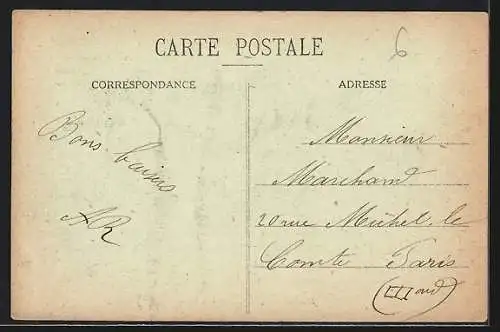 CARTE POSTALE
6
CORRESPONDANCE
ADRESSE
Bons baisers
AR
Monsieur
Marchand
20 rue Michel le
Comte Paris
(III ond)